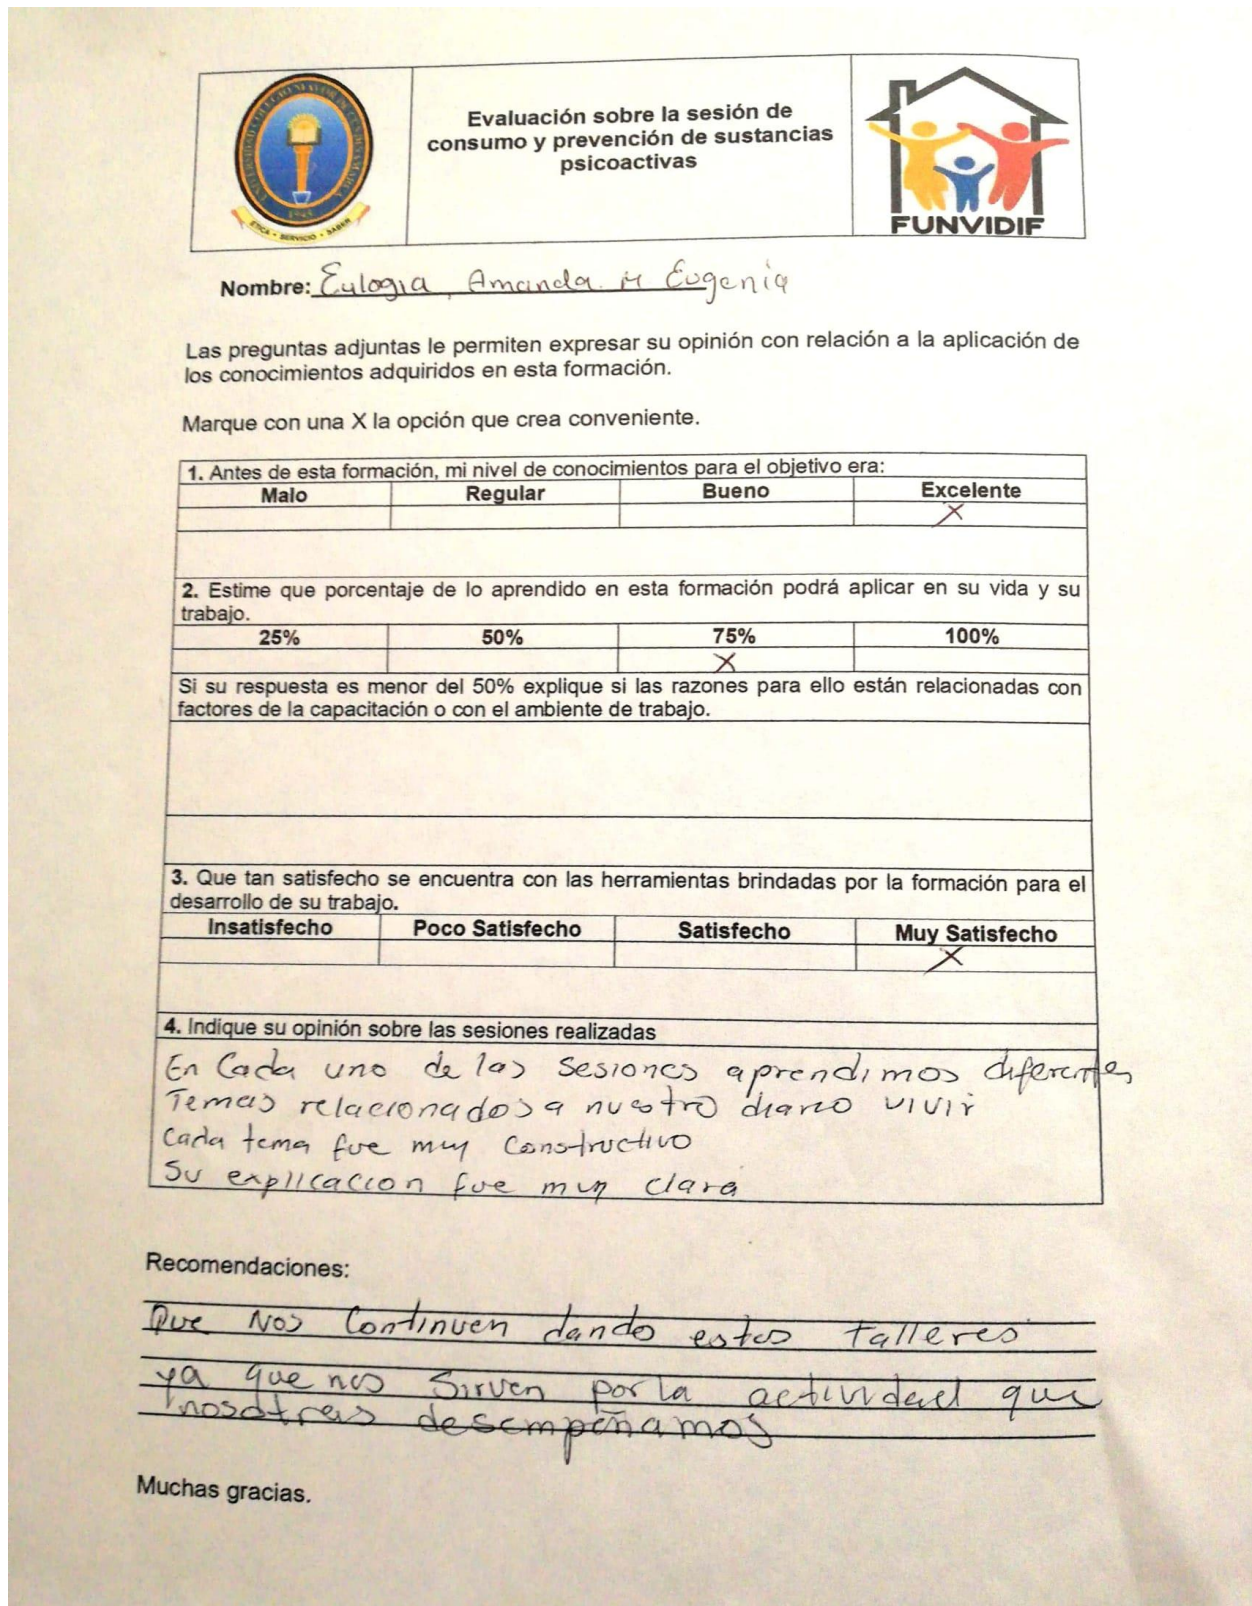 UNIVERSIDAD COLEGIO MAYOR DE CUNDINAMARCA
1945
ETICA • SERVICIO • SABER
Evaluación sobre la sesión de
consumo y prevención de sustancias
psicoactivas
FUNVIDIF
Nombre: Eulogia, Amanda M Eugenia
Las preguntas adjuntas le permiten expresar su opinión con relación a la aplicación de
los conocimientos adquiridos en esta formación.
Marque con una X la opción que crea conveniente.
1. Antes de esta formación, mi nivel de conocimientos para el objetivo era:
Malo Regular Bueno Excelente
X
2. Estime que porcentaje de lo aprendido en esta formación podrá aplicar en su vida y su
trabajo.
25% 50% 75% 100%
X
Si su respuesta es menor del 50% explique si las razones para ello están relacionadas con
factores de la capacitación o con el ambiente de trabajo.
3. Que tan satisfecho se encuentra con las herramientas brindadas por la formación para el
desarrollo de su trabajo.
Insatisfecho Poco Satisfecho Satisfecho Muy Satisfecho
X
4. Indique su opinión sobre las sesiones realizadas
En Cada uno de las sesiones aprendimos diferentes
Temas relacionados a nuestro diario vivir
Cada tema fue muy Constructivo
Su explicacion fue muy clara
Recomendaciones:
Que Nos Continuen dando estos talleres
ya que nos sirven por la actividad que
nosotras desempeñamos
Muchas gracias.